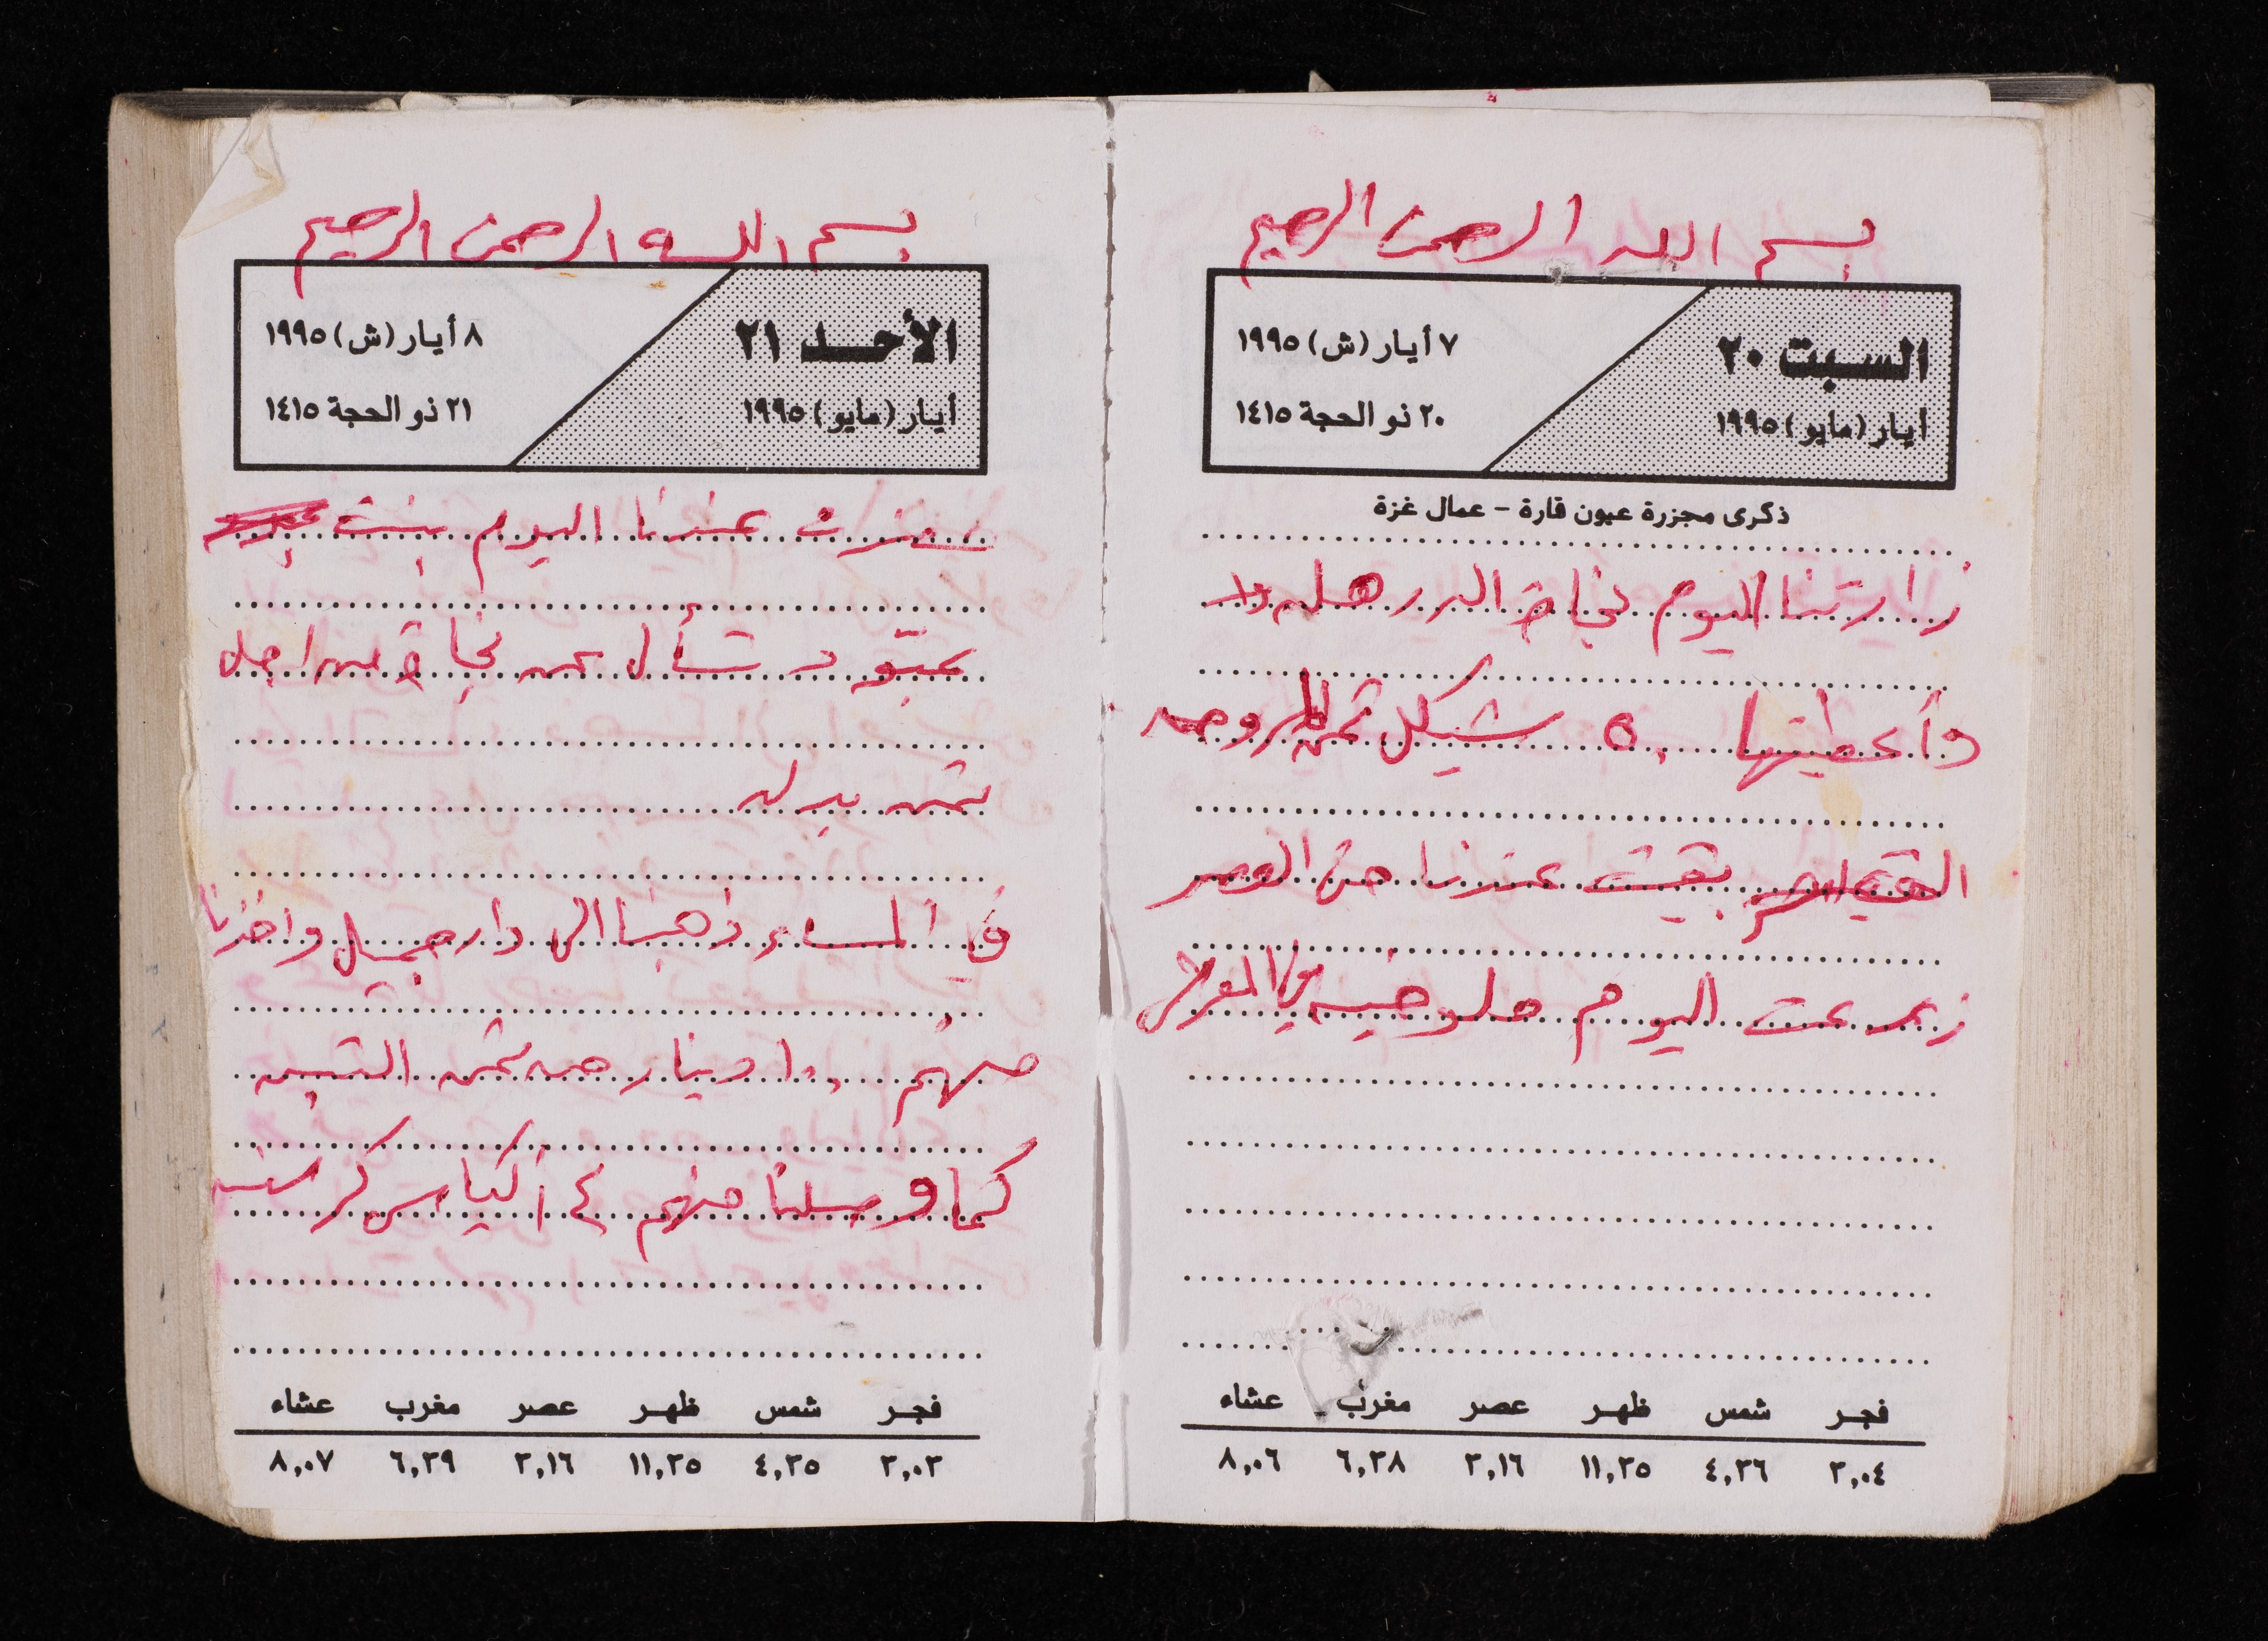 بسم الله الرحمن الرحيم
السبت ٢٠
أيار (مايو) ١٩٩٥
٧ أيار (ش) ١٩٩٥
٢٠ ذو الحجة ١٤١٥
ذكرى مجزرة عيون قارة - عمال غزة
زارتنا اليوم نجاة
وأعطيتها ٥٠ شيكل ثمن المروحه
بقيت عندنا حتى العصر
زرعت اليوم ملوخيه في
فجر شمس ظهر عصر مغرب عشاء
٣,٠٤ ٤,٣٦ ١١,٣٥ ٣,١٦ ٦,٣٨ ٨,٠٦
بسم الله الرحمن الرحيم
الأحد ٢١
أيار (مايو) ١٩٩٥
٨ أيار (ش) ١٩٩٥
٢١ ذو الحجة ١٤١٥
عندنا اليوم بنت
عبّود تسأل عن نجاة من اجل
ثمن بدله
في المساء ذهبنا الى دار جميل واخذنا
منهم ١٠٠ دينار من ثمن التبن
كما وصلنا منهم ٤ أكياس كرسنه
فجر شمس ظهر عصر مغرب عشاء
٣,٠٣ ٤,٣٥ ١١,٣٥ ٣,١٦ ٦,٣٩ ٨,٠٧